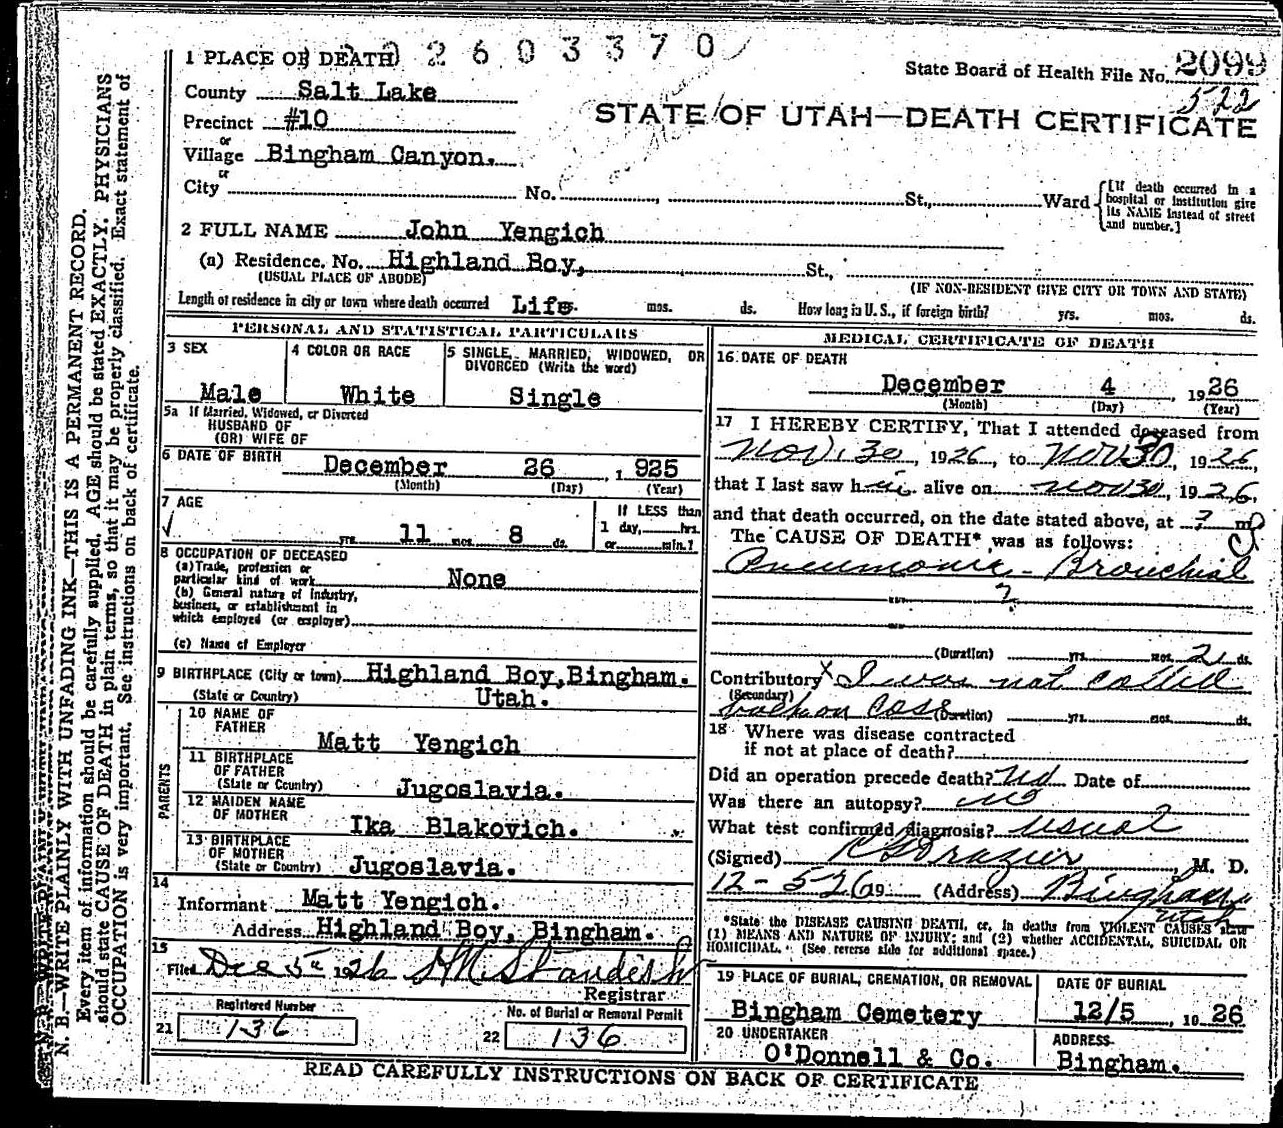 2603370
1 PLACE OF DEATH
State Board of Health File No. 2099
522
County Salt Lake
STATE OF UTAH—DEATH CERTIFICATE
Precinct #10
or
Village Bingham Canyon.
or
City No. , St., Ward
[If death occurred in a hospital or institution give its NAME instead of street and number.]
2 FULL NAME John Yengich
(a) Residence. No. Highland Boy, St.,
(USUAL PLACE OF ABODE)
(IF NON-RESIDENT GIVE CITY OR TOWN AND STATE)
Length of residence in city or town where death occurred Life. mos. ds. How long in U. S., if foreign birth? yrs. mos. ds.
PERSONAL AND STATISTICAL PARTICULARS
3 SEX
Male
4 COLOR OR RACE
White
5 SINGLE, MARRIED, WIDOWED, OR
DIVORCED (Write the word)
Single
5a If Married, Widowed, or Divorced
HUSBAND OF
(OR) WIFE OF
6 DATE OF BIRTH December 26 , 1925
(Month) (Day) (Year)
7 AGE
yrs. 11 mos. 8 ds.
If LESS than
1 day, hrs.
or min.?
8 OCCUPATION OF DECEASED
(a) Trade, profession or
particular kind of work None
(b) General nature of industry,
business, or establishment in
which employed (or employer)
(c) Name of Employer
9 BIRTHPLACE (City or town) Highland Boy,Bingham.
(State or Country) Utah.
PARENTS
10 NAME OF
FATHER
Matt Yengich
11 BIRTHPLACE
OF FATHER
(State or Country) Jugoslavia.
12 MAIDEN NAME
OF MOTHER
Ika Blakovich.
13 BIRTHPLACE
OF MOTHER
(State or Country) Jugoslavia.
14
Informant Matt Yengich.
Address Highland Boy, Bingham.
15
Filed Dec 5 1926 Standish
Registrar
Registered Number
21 136
No. of Burial or Removal Permit
22 136
MEDICAL CERTIFICATE OF DEATH
16 DATE OF DEATH
December 4 , 1926
(Month) (Day) (Year)
17 I HEREBY CERTIFY, That I attended deceased from
Nov. 30, 1926, to Nov 30, 1926,
that I last saw him alive on Nov 30, 1926,
and that death occurred, on the date stated above, at ? m
The CAUSE OF DEATH* was as follows:
Pneumonia - Bronchial
?
(Duration) yrs. mos. 2 ds.
Contributory X I was not called
(Secondary)
Case (Duration) yrs. mos. ds.
18 Where was disease contracted
if not at place of death?
Did an operation precede death? No Date of
Was there an autopsy? no
What test confirmed diagnosis? usual
(Signed) Frazier, M. D.
12-5 26 19 (Address) Bingham
Utah
*State the DISEASE CAUSING DEATH, or, in deaths from VIOLENT CAUSES state
(1) MEANS AND NATURE OF INJURY; and (2) whether ACCIDENTAL, SUICIDAL OR
HOMICIDAL. (See reverse side for additional space.)
19 PLACE OF BURIAL, CREMATION, OR REMOVAL
Bingham Cemetery
DATE OF BURIAL
12/5 , 19 26
20 UNDERTAKER
O'Donnell & Co.
ADDRESS
Bingham.
READ CAREFULLY INSTRUCTIONS ON BACK OF CERTIFICATE
N. B.—WRITE PLAINLY WITH UNFADING INK—THIS IS A PERMANENT RECORD.
Every item of information should be carefully supplied. AGE should be stated EXACTLY. PHYSICIANS
should state CAUSE OF DEATH in plain terms, so that it may be properly classified. Exact statement of
OCCUPATION is very important. See instructions on back of certificate.